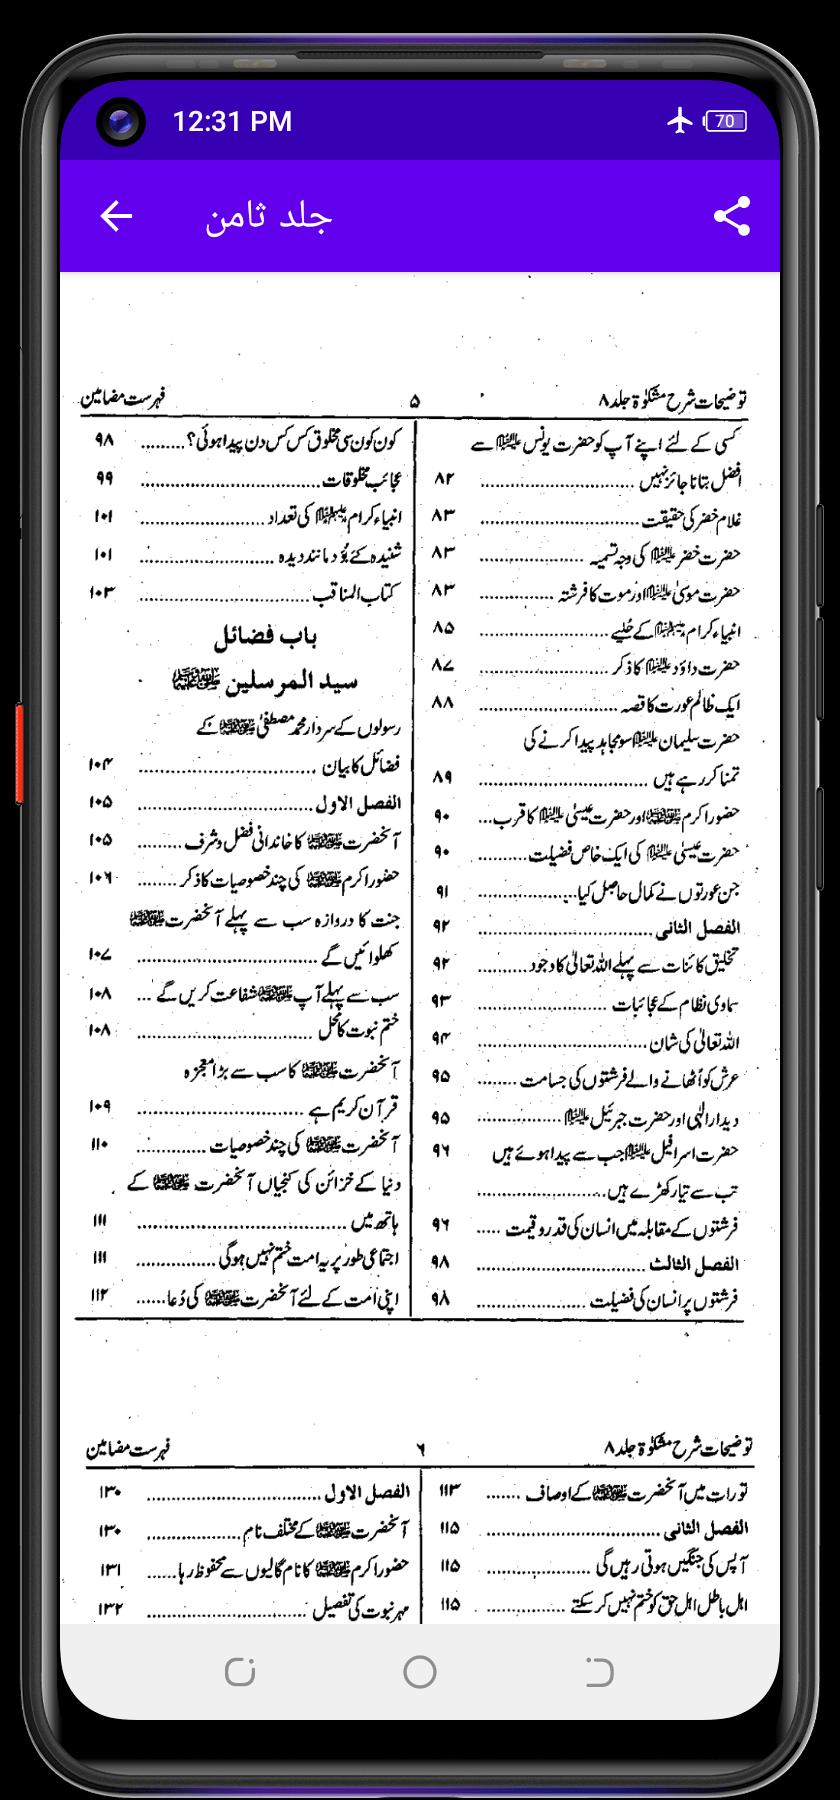 12:31 PM
70
جلد ثامن
توضیحات شرح مشکوٰة جلد ۸
۵
فہرست مضامین
کسی کے لئے اپنے آپ کو حضرت یونس علیہ السلام سے
افضل بتانا جائز نہیں ........ ۸۲
غلام خضر کی حقیقت ........ ۸۳
حضرت خضر علیہ السلام کی وجہ تسمیہ ........ ۸۳
حضرت موسیٰ علیہ السلام اور موت کا فرشتہ ........ ۸۳
انبیاء کرام علیہم السلام کے حلیے ........ ۸۵
حضرت داؤد علیہ السلام کا ذکر ........ ۸۷
ایک ظالم عورت کا قصہ ........ ۸۸
حضرت سلیمان علیہ السلام سو مجاہد پیدا کرنے کی
تمنا کر رہے ہیں ........ ۸۹
حضور اکرم ﷺ اور حضرت عیسیٰ علیہ السلام کا قرب ... ۹۰
حضرت عیسیٰ علیہ السلام کی ایک خاص فضیلت ........ ۹۰
جن عورتوں نے کمال حاصل کیا ........ ۹۱
الفصل الثانی ........ ۹۲
تخلیق کائنات سے پہلے اللہ تعالیٰ کا وجود ........ ۹۲
سماوی نظام کے عجائبات ........ ۹۳
اللہ تعالیٰ کی شان ........ ۹۴
عرش کو اُٹھانے والے فرشتوں کی جسامت ........ ۹۵
دیدار الٰہی اور حضرت جبرئیل علیہ السلام ........ ۹۵
حضرت اسرافیل علیہ السلام جب سے پیدا ہوئے ہیں ۹۶
تب سے تیار کھڑے ہیں ........
فرشتوں کے مقابلہ میں انسان کی قدر و قیمت ..... ۹۶
الفصل الثالث ........ ۹۸
فرشتوں پر انسان کی فضیلت ........ ۹۸
کون کون سی مخلوق کس کس دن پیدا ہوئی؟ ........ ۹۸
عجائب مخلوقات ........ ۹۹
انبیاء کرام علیہم السلام کی تعداد ........ ۱۰۱
شنیدہ کے بُوَد مانند دیدہ ........ ۱۰۱
کتاب المناقب ........ ۱۰۳
باب فضائل
سید المرسلین ﷺ
رسولوں کے سردار محمد مصطفیٰ ﷺ کے
فضائل کا بیان ........ ۱۰۴
الفصل الاول ........ ۱۰۵
آنحضرت ﷺ کا خاندانی فضل و شرف ........ ۱۰۵
حضور اکرم ﷺ کی چند خصوصیات کا ذکر ........ ۱۰۶
جنت کا دروازہ سب سے پہلے آنحضرت ﷺ
کھلوائیں گے ........ ۱۰۷
سب سے پہلے آپ ﷺ شفاعت کریں گے ... ۱۰۸
ختم نبوت کا محل ........ ۱۰۸
آنحضرت ﷺ کا سب سے بڑا معجزہ
قرآن کریم ہے ........ ۱۰۹
آنحضرت ﷺ کی چند خصوصیات ........ ۱۱۰
دنیا کے خزائن کی کنجیاں آنحضرت ﷺ کے
ہاتھ میں ........ ۱۱۱
اجتماعی طور پر یہ امت ختم نہیں ہوگی ........ ۱۱۱
اپنی امت کے لئے آنحضرت ﷺ کی دُعا ...... ۱۱۲
توضیحات شرح مشکوٰة جلد ۸
۶
فہرست مضامین
تورات میں آنحضرت ﷺ کے اوصاف ....... ۱۱۳
الفصل الثانی ........ ۱۱۵
آپس کی جنگیں ہوتی رہیں گی ........ ۱۱۵
اہل باطل اہل حق کو ختم نہیں کر سکتے ........ ۱۱۵
الفصل الاول ........ ۱۳۰
آنحضرت ﷺ کے مختلف نام ........ ۱۳۰
حضور اکرم ﷺ کا نام گالیوں سے محفوظ رہا ...... ۱۳۱
مہر نبوت کی تفصیل ........ ۱۳۲